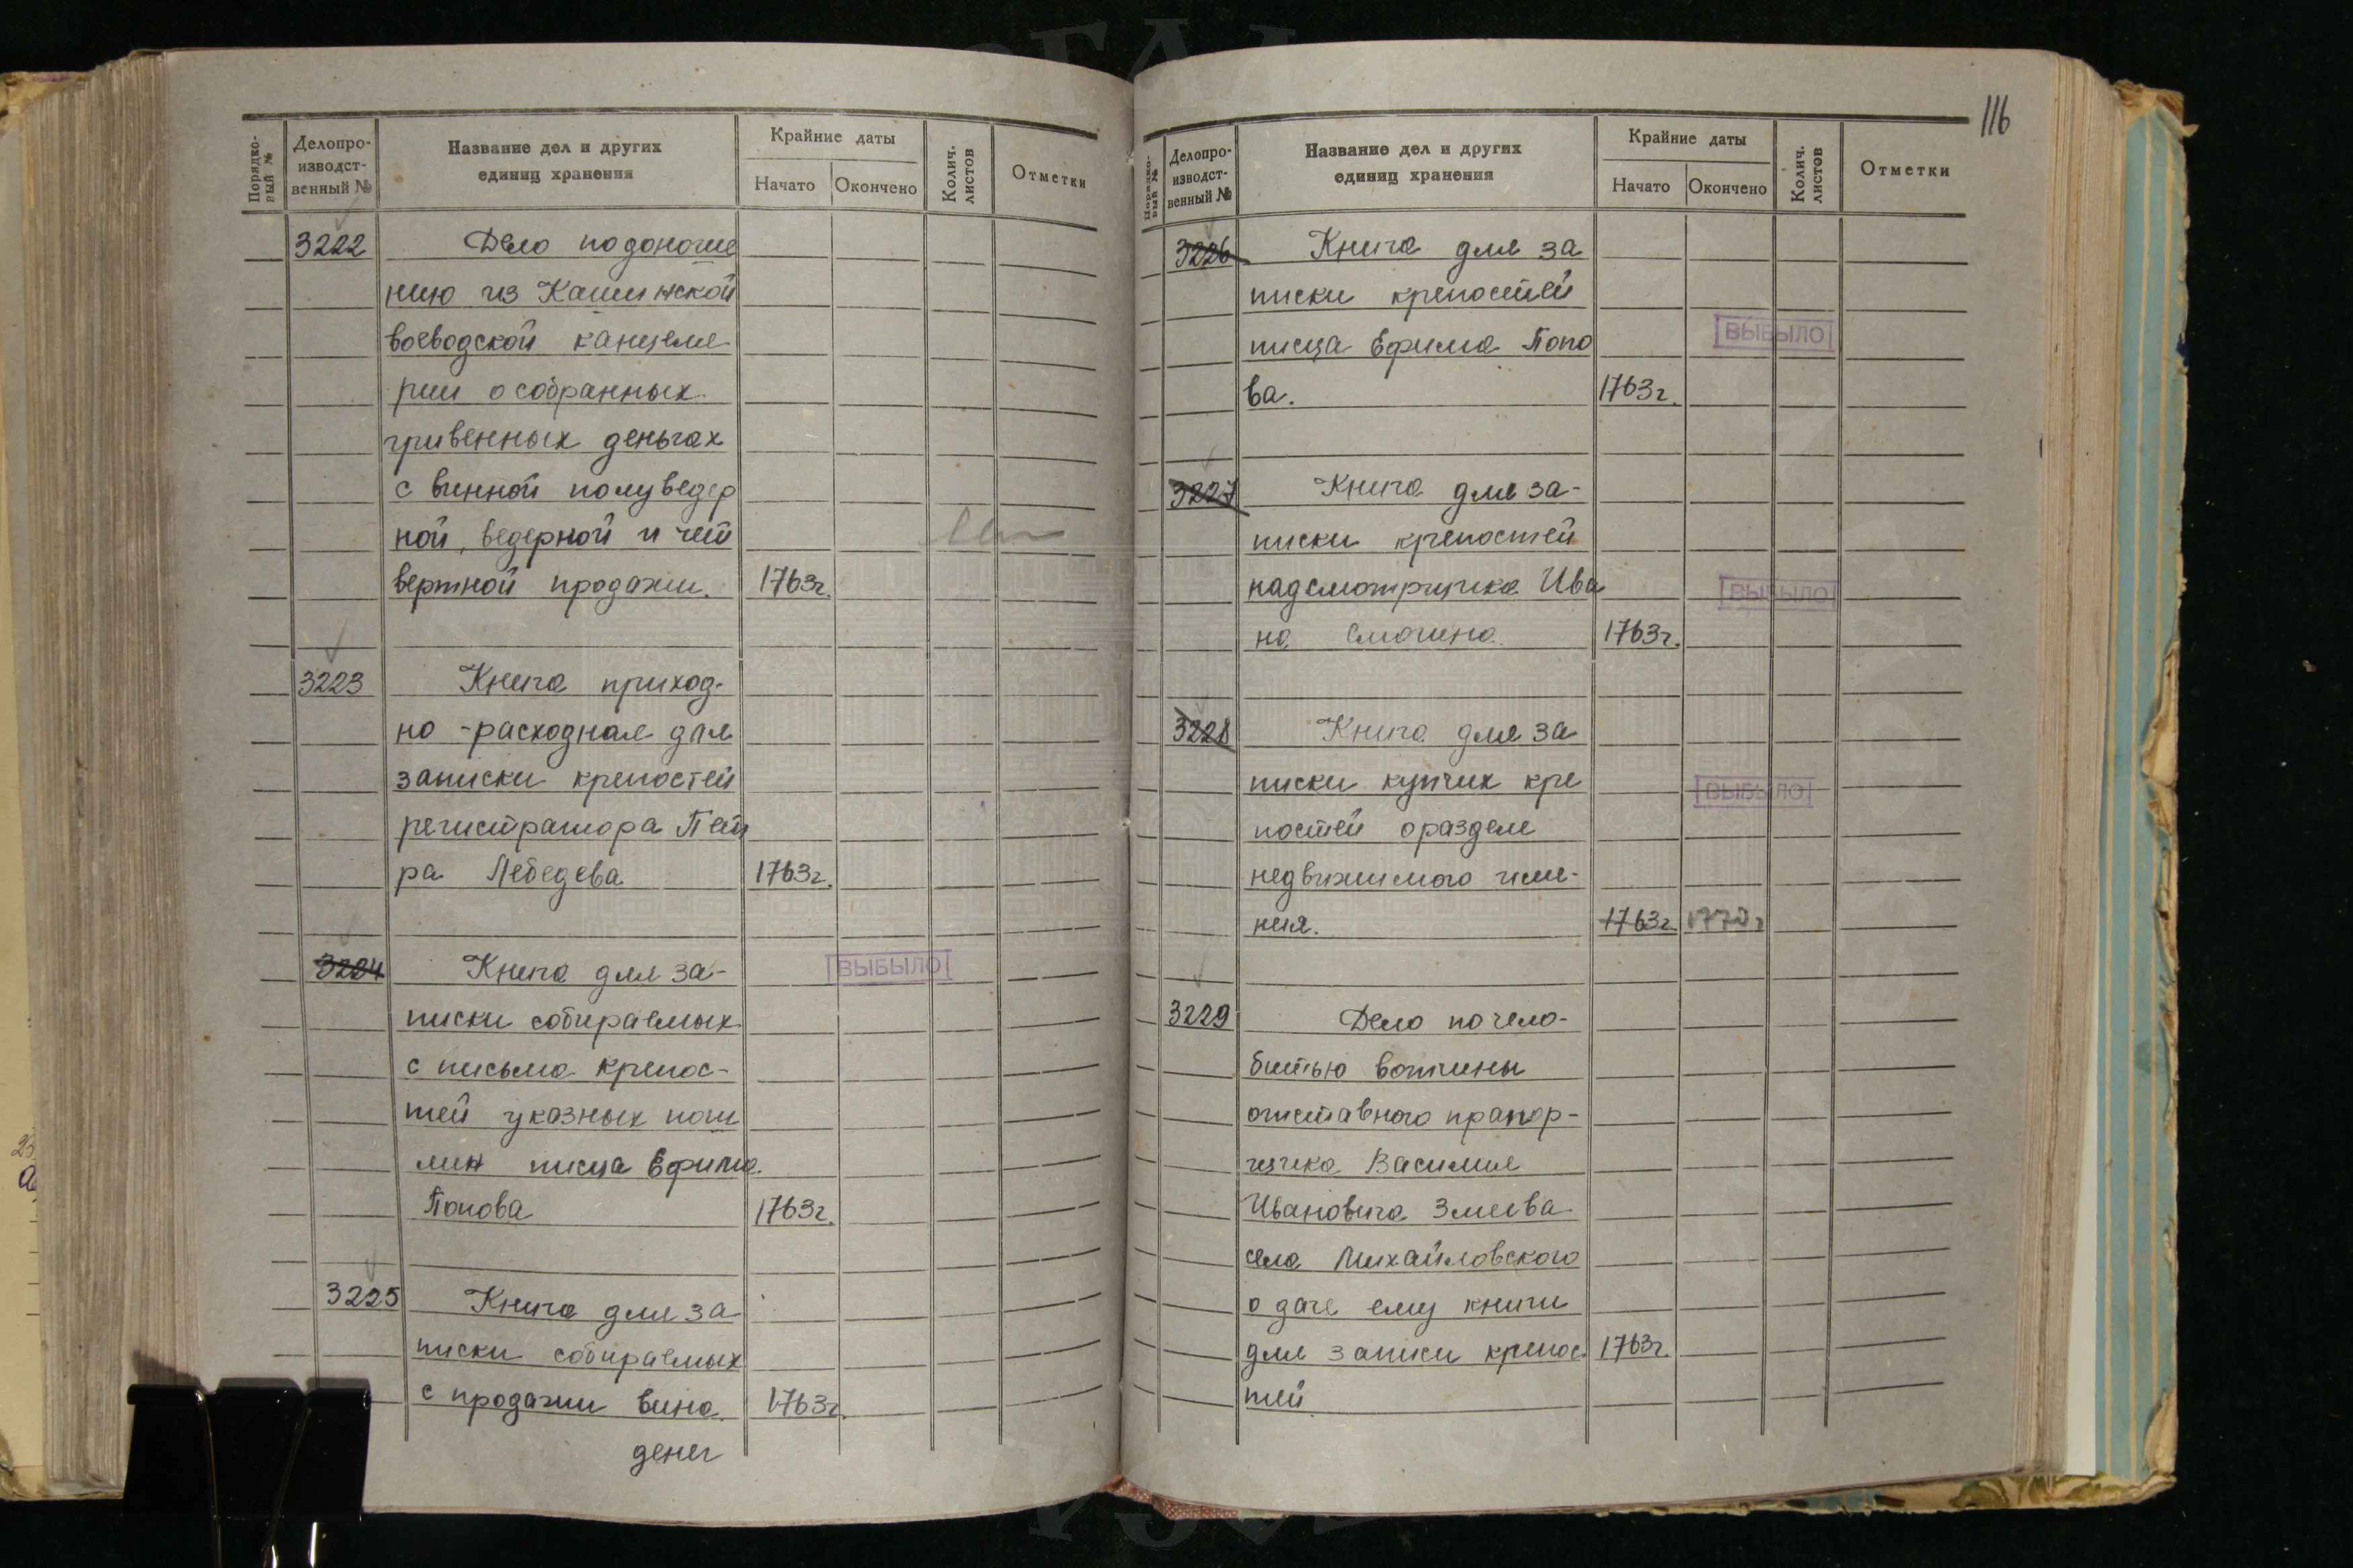 116
Порядко-
вый №
Делопро-
изводст-
венный №
Название дел и других
единиц хранения
Крайние даты
Начато
Окончено
Колич.
листов
Отметки
3222 Дело по доноше
нию из Кашинской
воеводской канцеля
рии о собранных
гривенных деньгах
с винной полуведер
ной, ведерной и чет
вертной продажи. 1763г.
3223 Книга приход-
но-расходная для
записки крепостей
регистратора Пет
ра Лебедева 1763г.
3224 Книга для за-
ВЫБЫЛО
писки собираемых
с письма крепос-
тей указных пош
лин писца Ефима
Попова 1763г.
3225 Книга для за
писки собираемых
с продажи вина 1763г.
денег
Порядко-
вый №
Делопро-
изводст-
венный №
Название дел и других
единиц хранения
Крайние даты
Начато
Окончено
Колич.
листов
Отметки
3226 Книга для за
писки крепостей
ВЫБЫЛО
писца Ефима Попо
ва. 1763г.
3227 Книга для за-
писки крепостей
надсмотрщика Ива
ВЫБЫЛО
на Смагина 1763г.
3228 Книга для за
писки купчих кре
ВЫБЫЛО
постей о разделе
недвижимого име-
ния. 1763г. 1770г
3229 Дело по чело-
битью вотчины
отставного прапор-
щика Василия
Ивановича Змеева
села Михайловского
о даче ему книги
для записи крепос 1763г.
тей